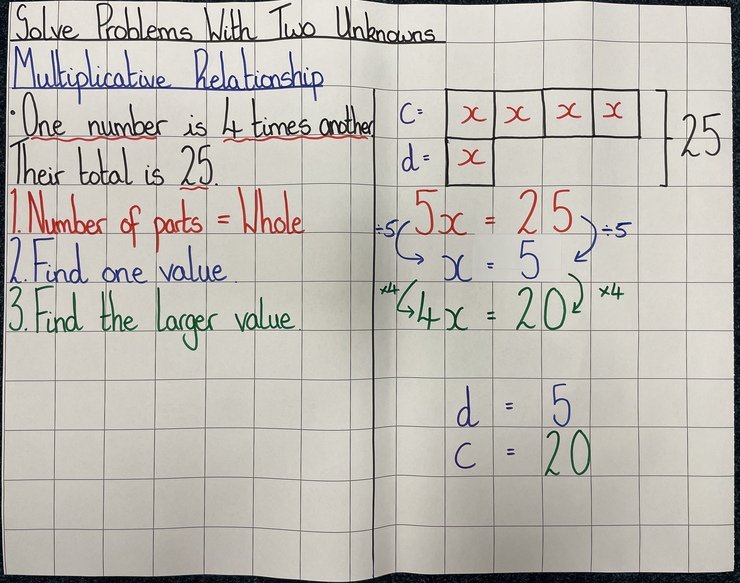 Solve Problems With Two Unknowns
Multiplicative Relationship
·One number is 4 times another
Their total is 25.
1. Number of parts = Whole
2. Find one value
3. Find the larger value
c= x x x x
d= x
25
÷5 5x = 25 ÷5
x = 5
×4 4x = 20 ×4
d = 5
c = 20